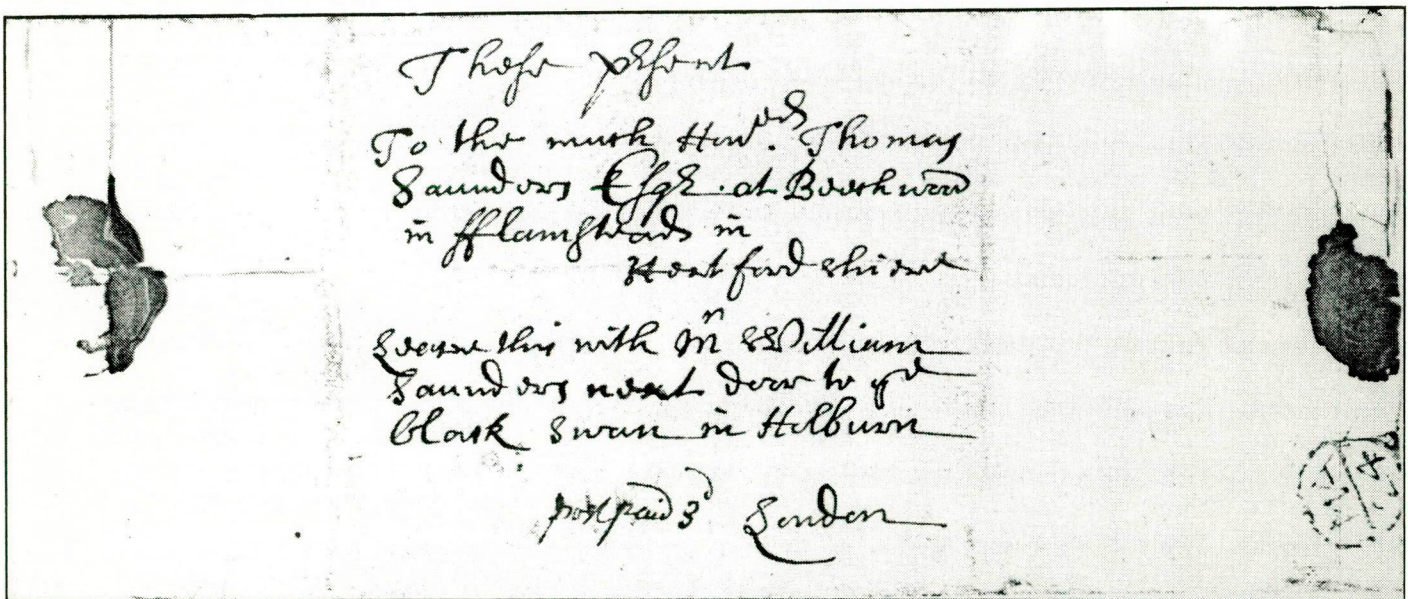 These present
To the much Hon.ed Thomas
Saunders Esqr. at Beechwood
in fflamsteade in
Hertford shiere
Leave this with Mr William
Saunders next dore to ye
black Swan in Holburn
post paid 3d London